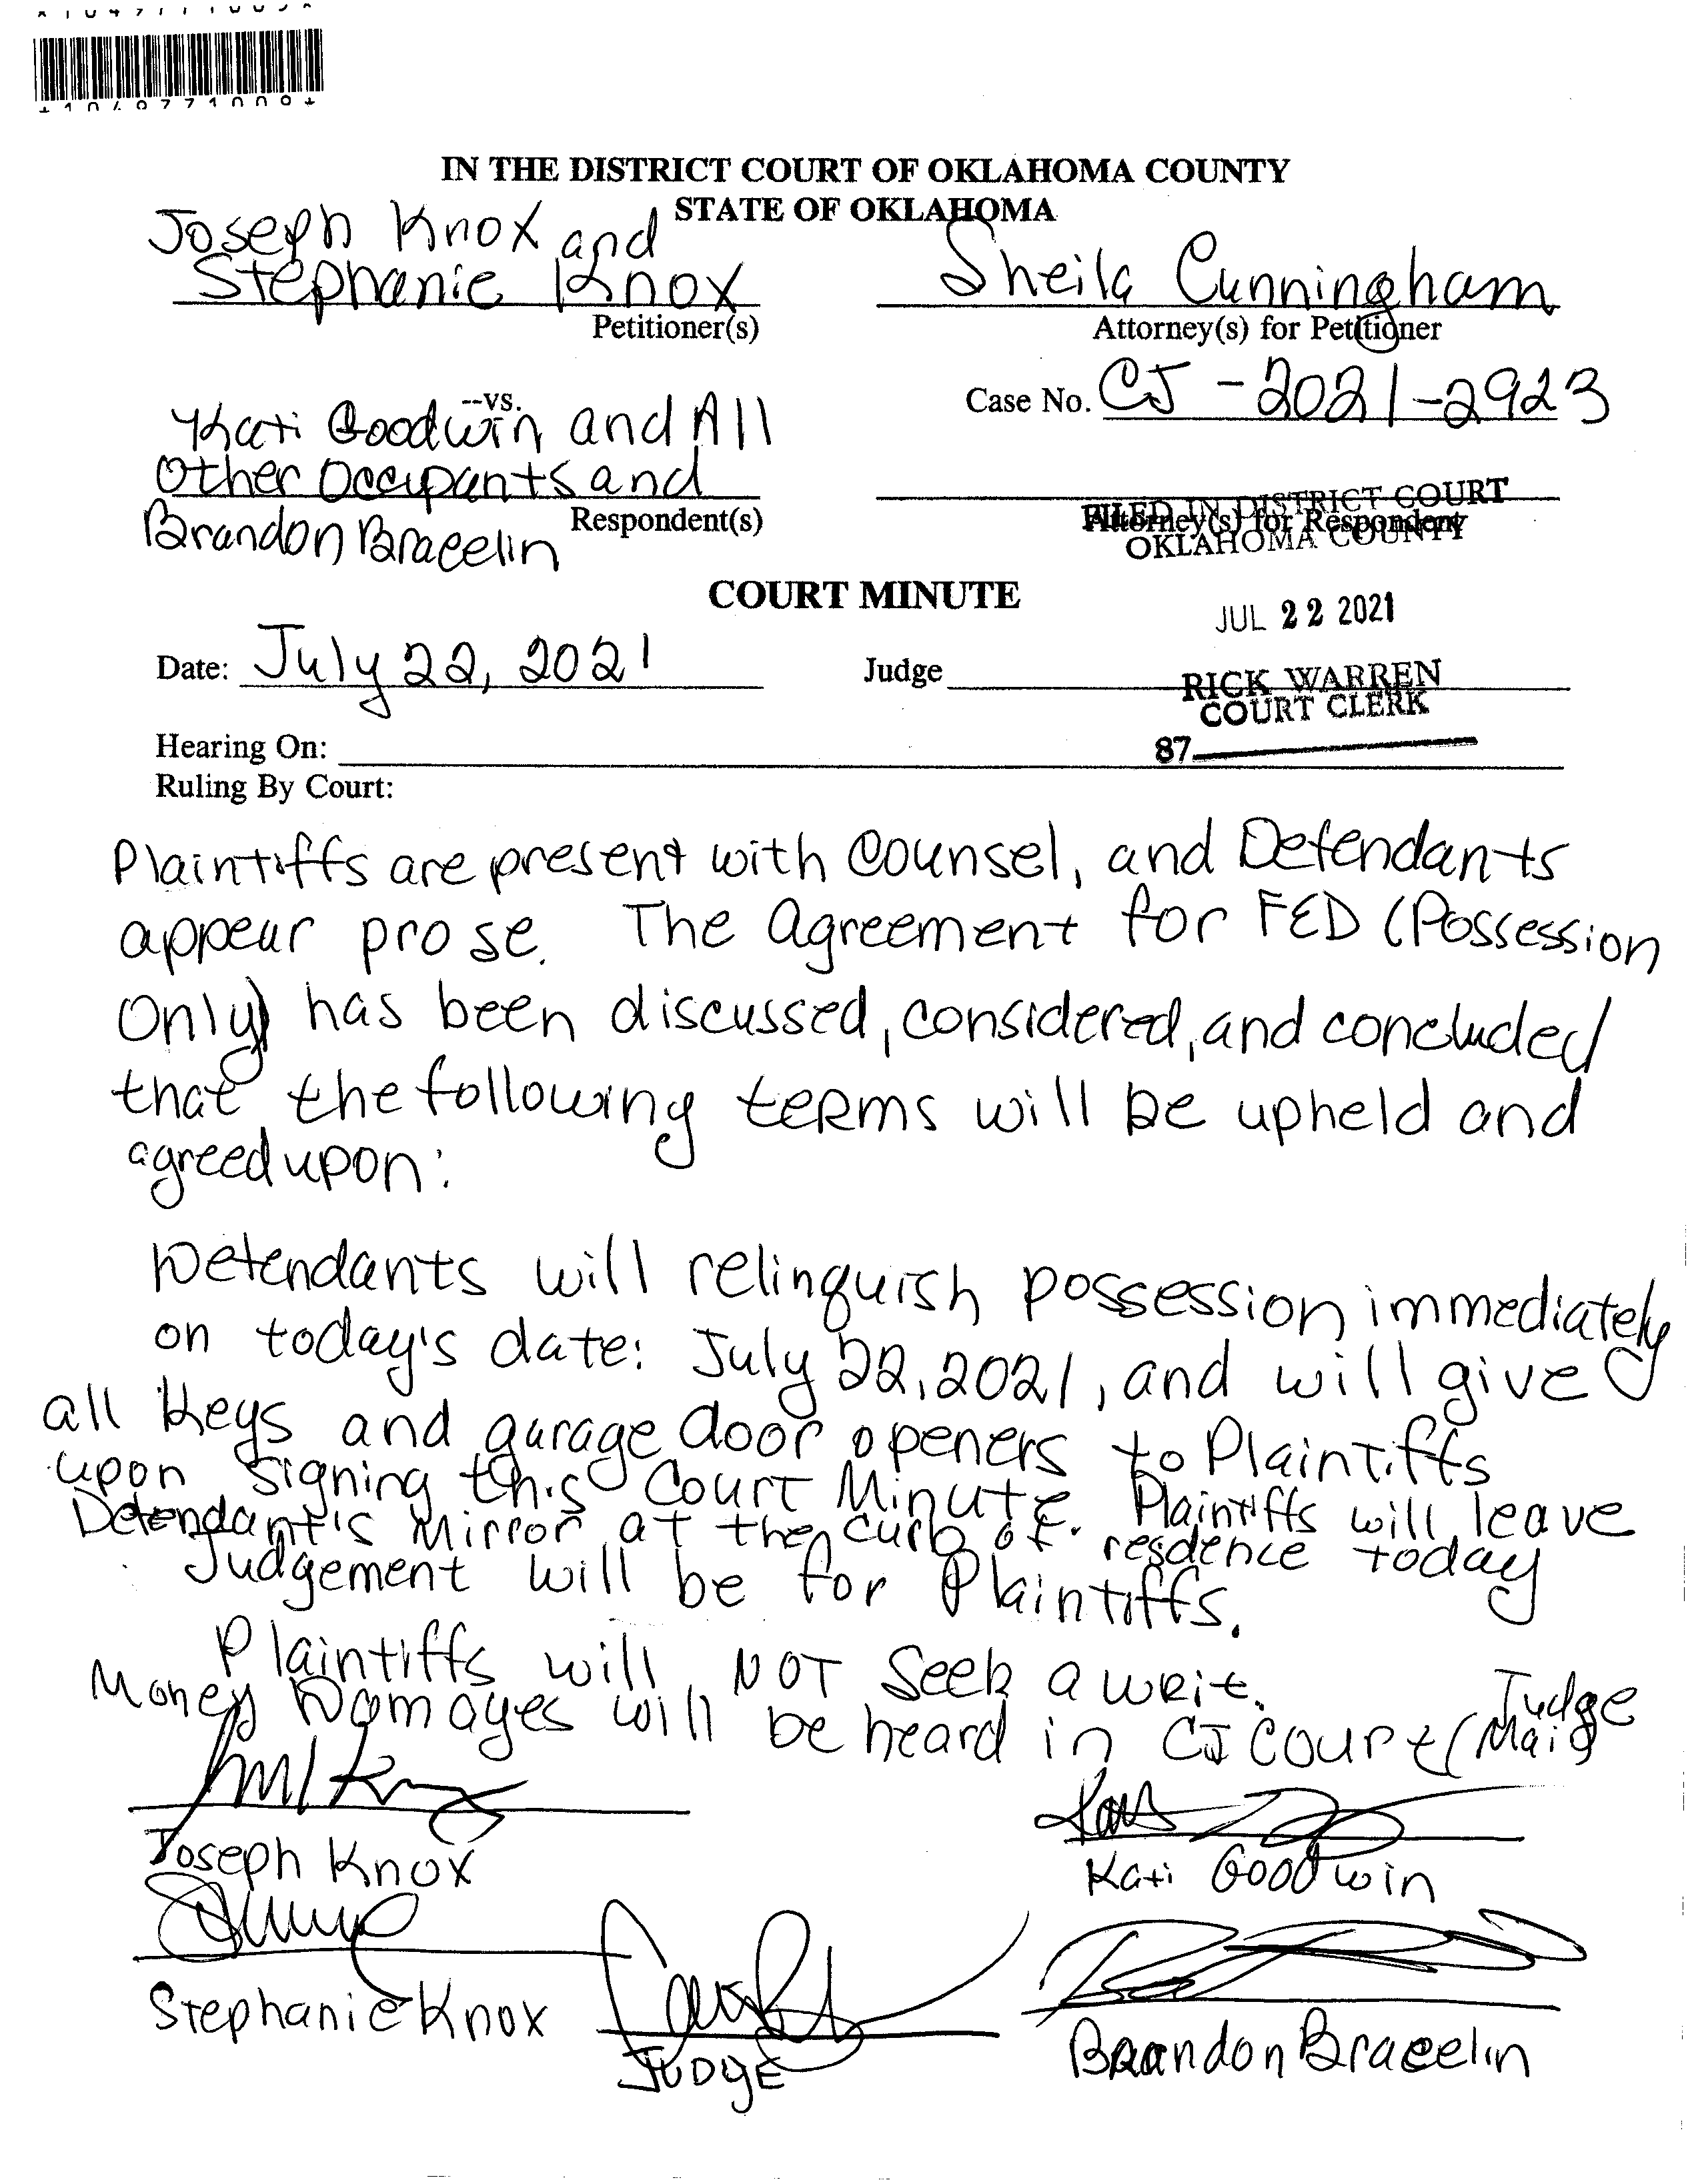 *1049771009*
IN THE DISTRICT COURT OF OKLAHOMA COUNTY
STATE OF OKLAHOMA
Joseph Knox and
Stephanie Knox
Petitioner(s)
Sheila Cunningham
Attorney(s) for Petitioner
--vs.
Case No. CJ-2021-2923
Kati Goodwin and All
Other Occupants and
Brandon Bracelin
Respondent(s)
Attorney(s) for Respondent
FILED IN DISTRICT COURT
OKLAHOMA COUNTY
COURT MINUTE
JUL 22 2021
Date: July 22, 2021
Judge
RICK WARREN
COURT CLERK
87
Hearing On:
Ruling By Court:
Plaintiffs are present with Counsel, and Defendants
appear pro se. The Agreement for FED (Possession
Only) has been discussed, considered, and concluded
that the following terms will be upheld and
agreed upon:
Defendants will relinquish possession immediately
on today's date: July 22, 2021, and will give
all keys and garage door openers to Plaintiffs
upon signing this Court Minute. Plaintiffs will leave
Defendant's Mirror at the curb of resdence today
Judgement will be for Plaintiffs.
Plaintiffs will NOT Seek a writ.
Money Damages will be heard in CJ Court (Judge Mai
Joseph Knox
Kati Goodwin
Stephanie Knox
JUDGE
Brandon Bracelin